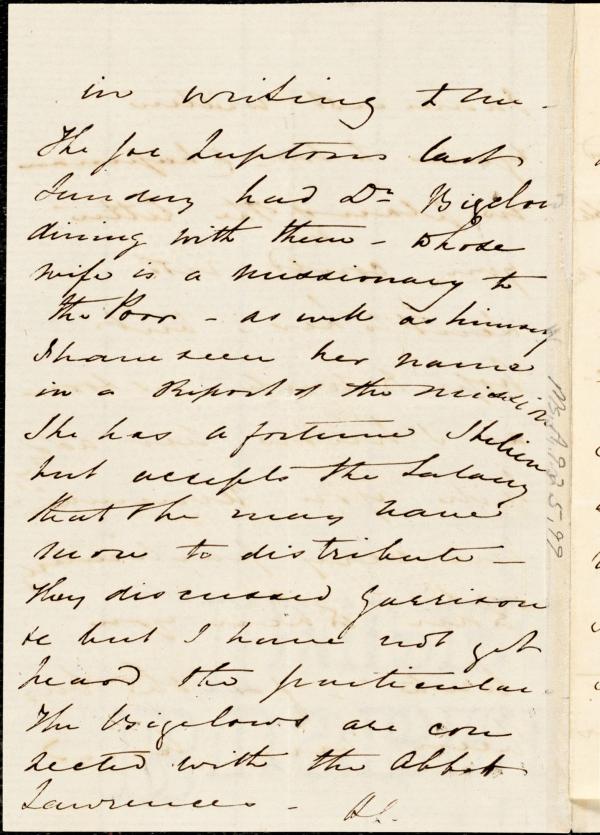 in writing to me -
The Joe Luptons last
Sunday had Dr. Bigelow
dining with them - whose
wife is a missionary to
the Poor - as well as himself
I have seen her name
in a Report of the mission
She has a fortune I believe
but accepts the Salary
that she may have
more to distribute -
They discussed Garrison
&c but I have not yet
heard the particular
The Bigelows are con
nected with the Abbot
Lawrences -
Ms.A.9.2.5.99